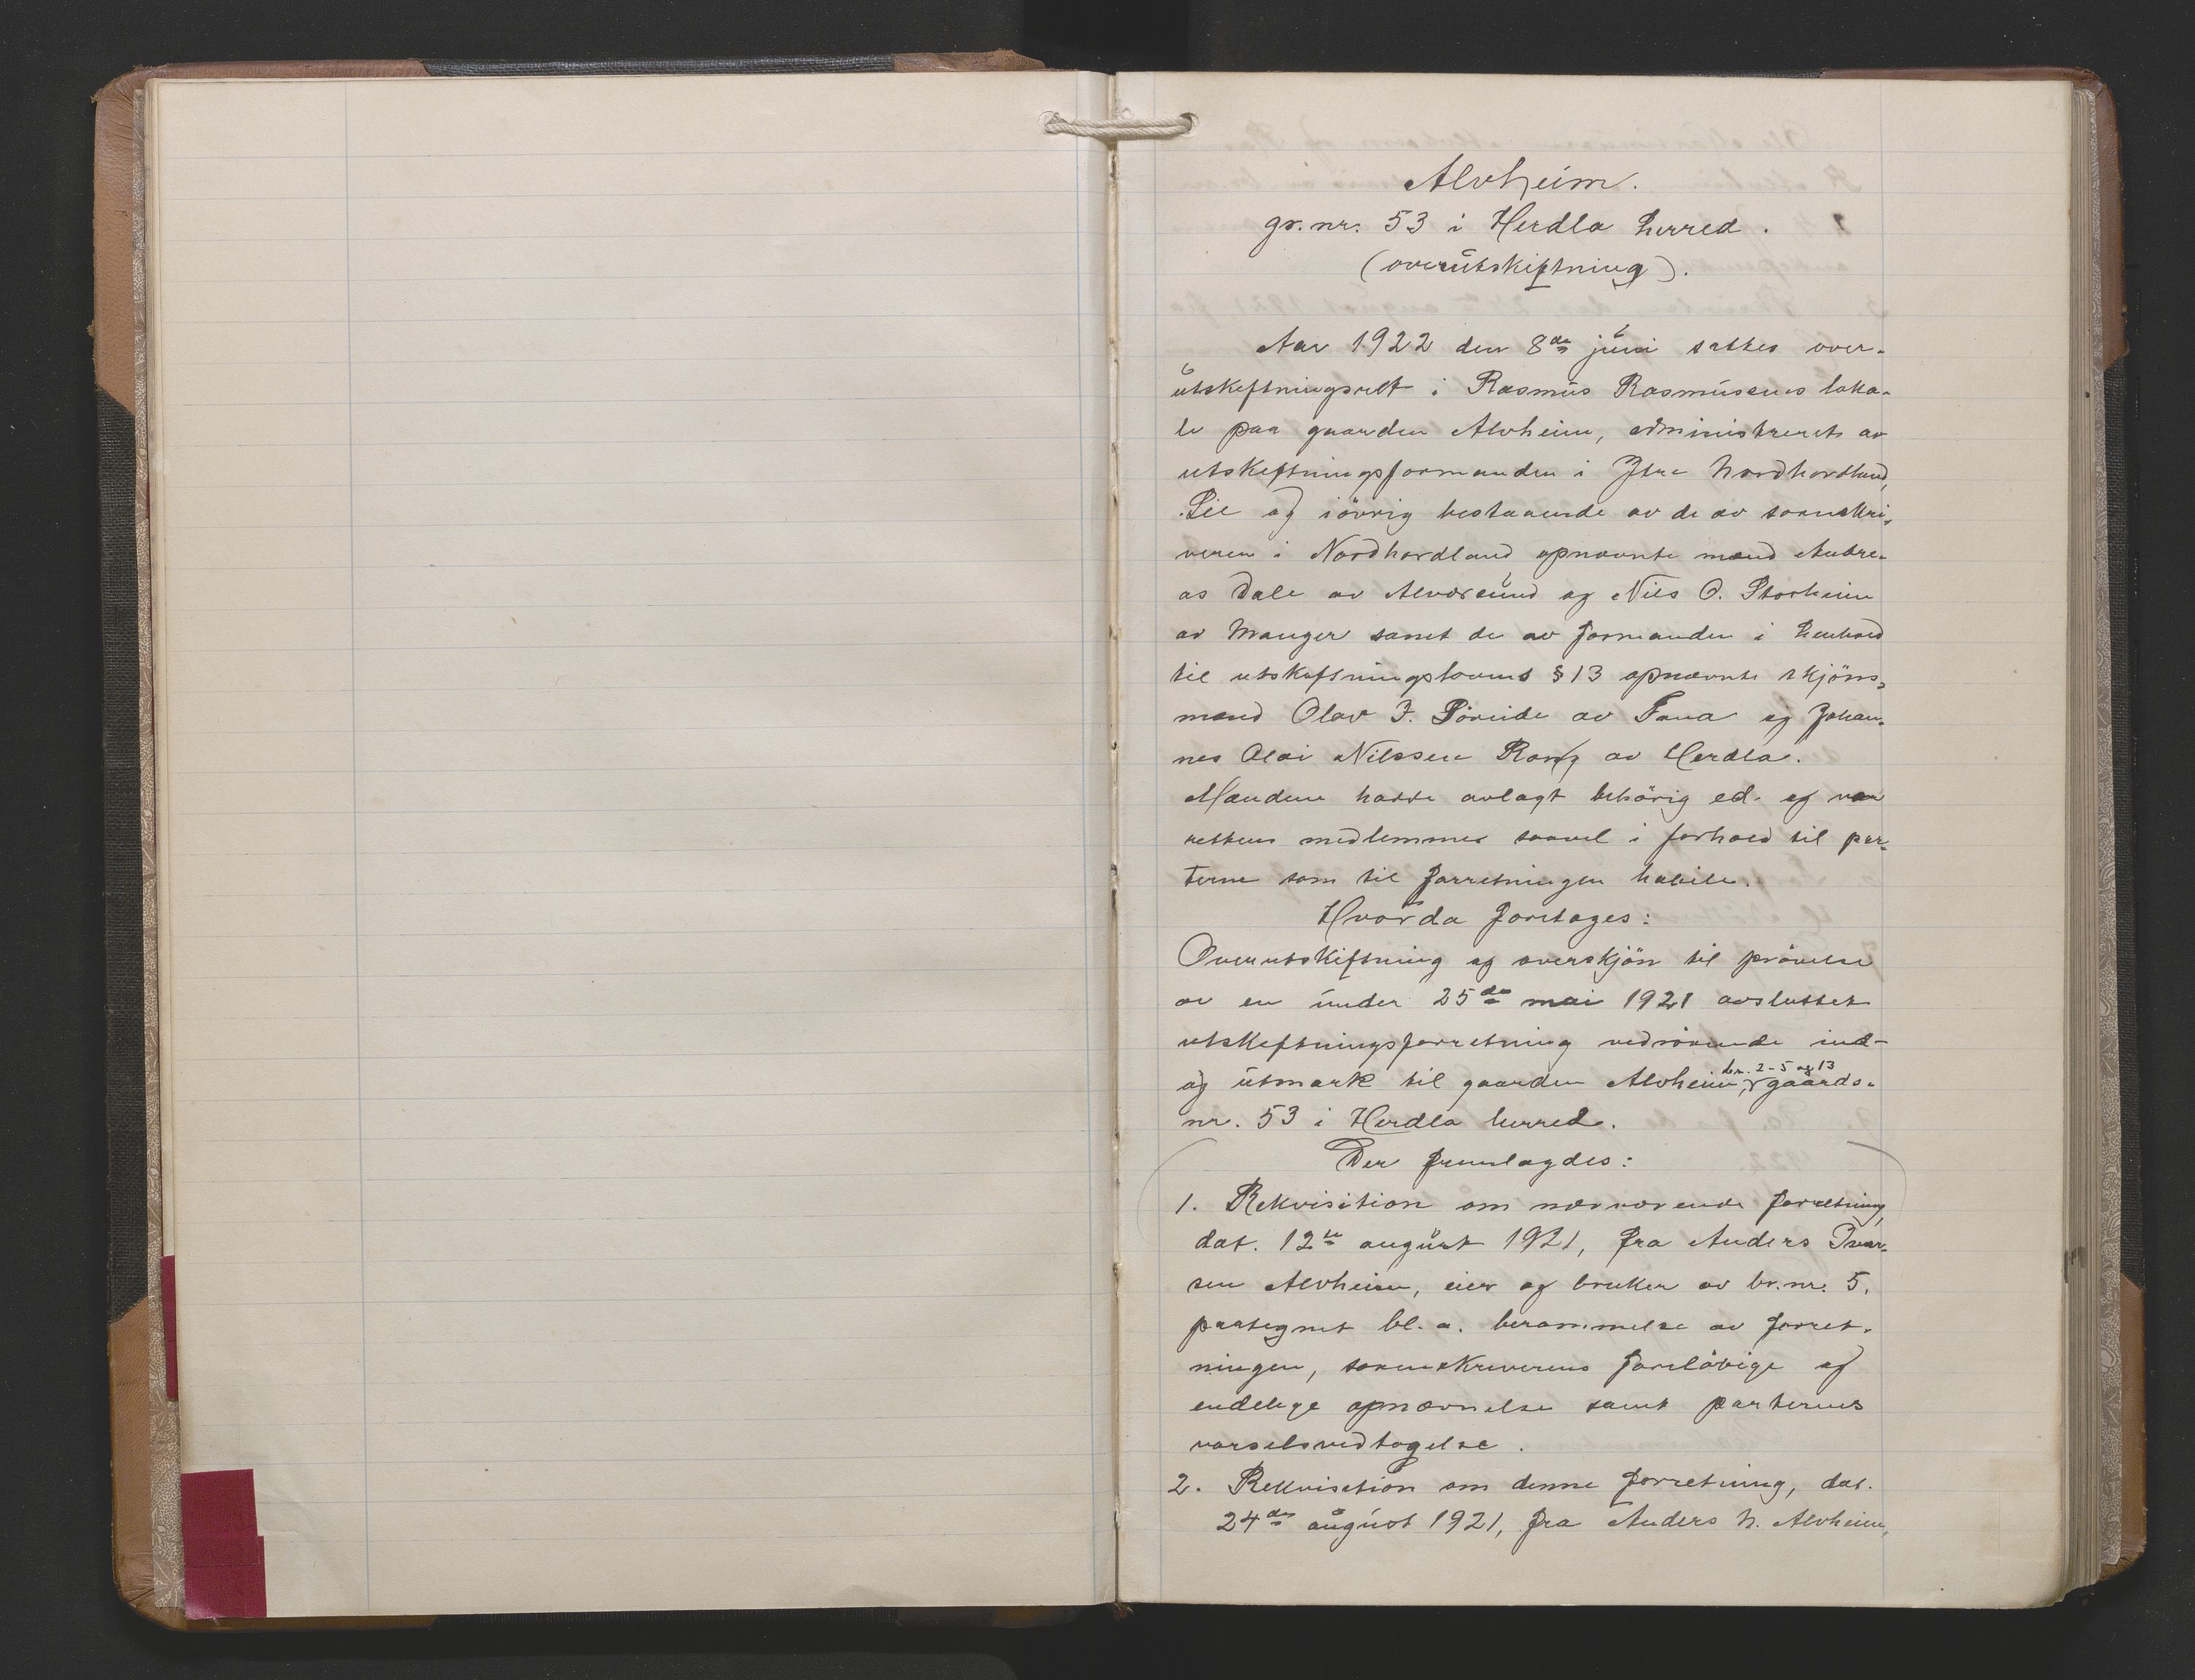 Alvheim.
gr. nr. 53 i Herdla herred.
(overutskiftning).
Aar 1922 den 8de juni sattes over-
utskiftningsrett i Rasmus Rasmussens loka-
le paa gaarden Alvheim, administreret av
utskiftningsformanden i Ytre Nordhordland,
Lie og iövrig bestaaende av de av sorenskri-
veren i Nordhordland opnævnte mænd Andre-
as Dale av Alversund og Nils O. Storheim
av Manger samt de av formanden i henhold
til utskiftningslovens § 13 opnævnte skjöns-
mænd Olav J. Söreide av Fana og Johan-
nes Olai Nilssen Rong av Herdla.
Mændene hadde avlagt behörig ed og var
rettens medlemmer saavel i forhold til par-
terne som til forretningen habile.
Hvorda foretages:
Overutskiftning og overskjön til prövelse
av en under 25de mai 1921 avsluttet
utskiftningsforretning vedrörende ind-
og utmark til gaarden Alvheim, br.nr. 2-5 og 13 gaards-
nr. 53 i Herdla herred.
Der fremlagdes:
1. Rekvisition om nærværende forretning,
dat. 12te august 1921, fra Anders Ivar-
sen Alvheim, eier og bruker av br.nr. 5,
paategnet bl. a. berammelse av forret-
ningen, sorenskriverens foreløbige og
endelige opnævnelse samt parternes
varselsvedtagelse.
2. Rekvisition om denne forretning, dat.
24de august 1921, fra Anders N. Alvheim,